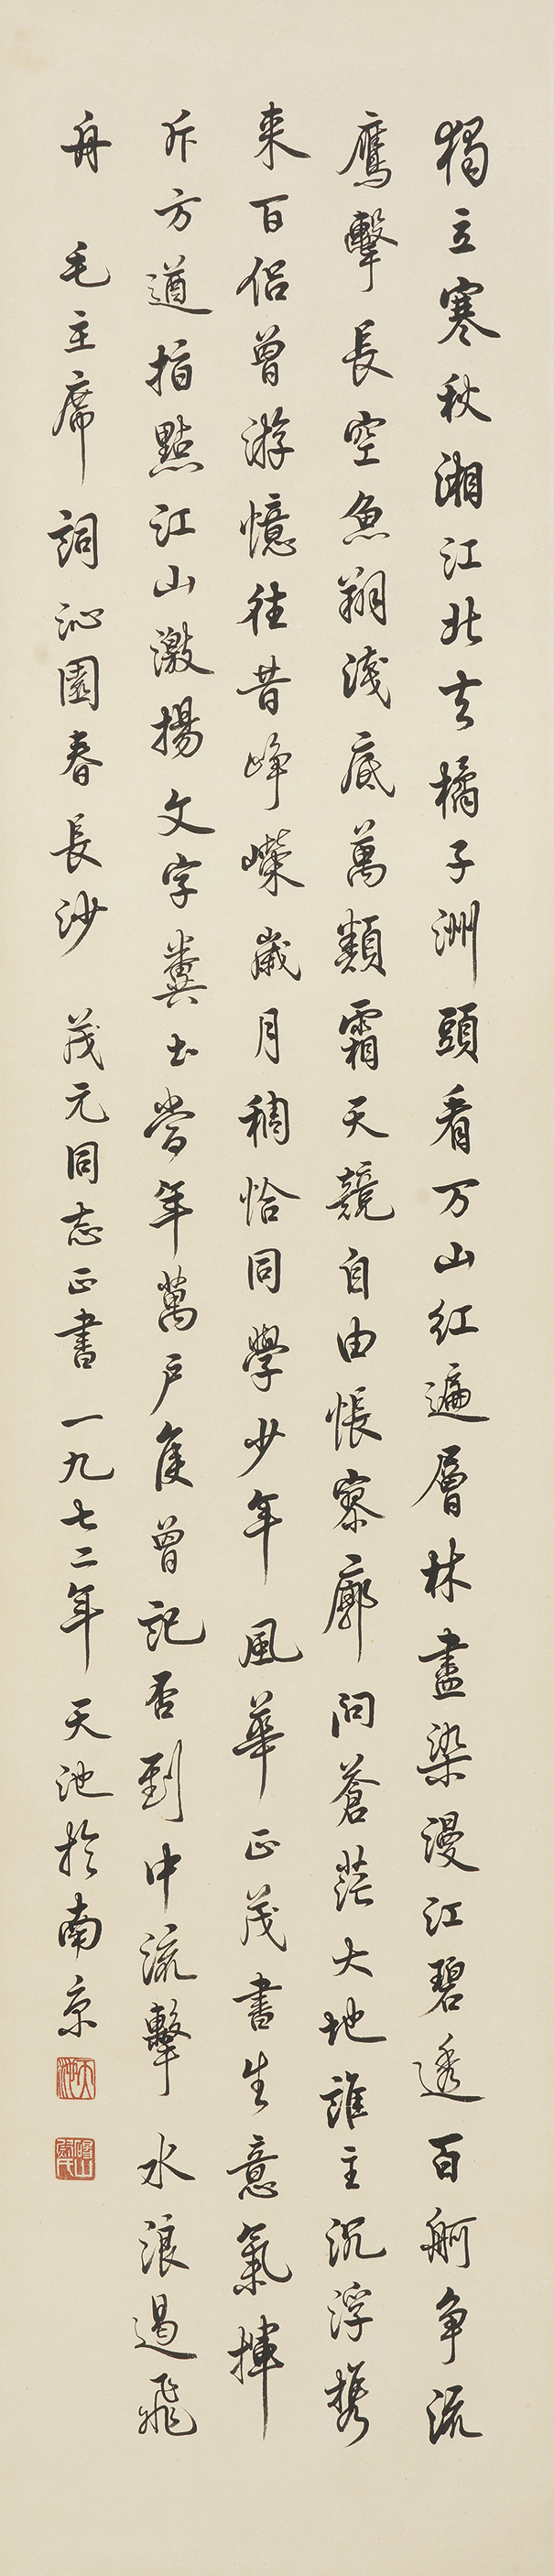 獨立寒秋湘江北去橘子洲頭看万山紅遍層林盡染漫江碧透百舸争流
鷹擊長空魚翔淺底萬類霜天競自由悵寥廓問蒼茫大地誰主沉浮携
来百侣曾游憶往昔崢嶸嵗月稠恰同學少年風華正茂書生意氣揮
斥方遒指點江山激揚文字糞土當年萬户侯曾記否到中流擊水浪遏飛
舟 毛主席詞沁園春長沙 茂元同志正書 一九七二年 天池於南京
天池